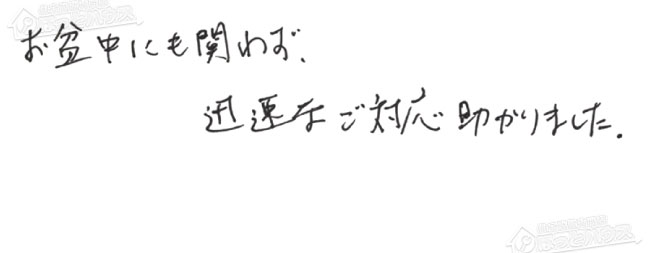 お盆中にも関わず、
迅速なご対応助かりました。